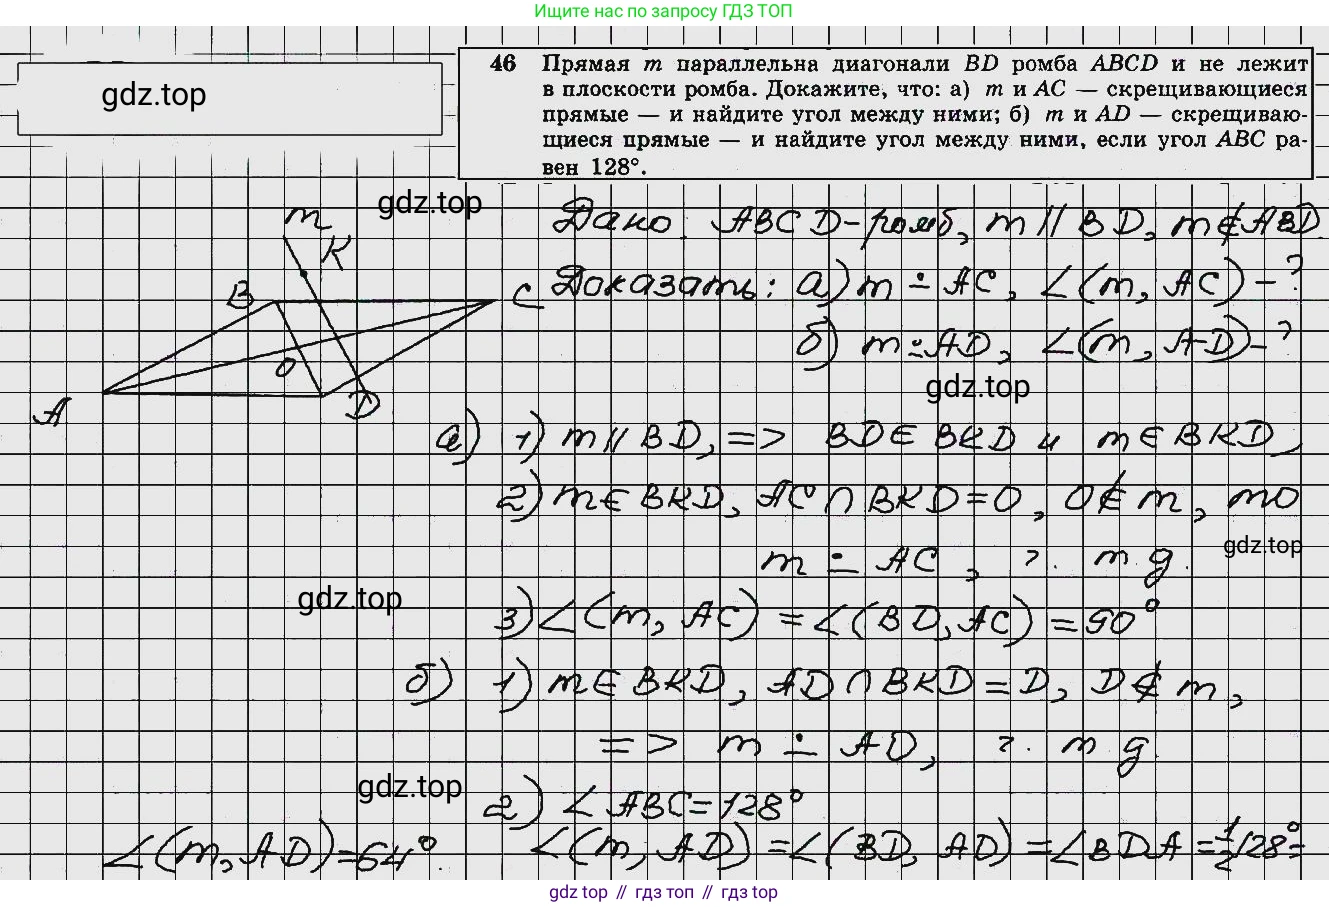 Ищите нас по запросу ГДЗ ТОП
gdz.top
46 Прямая m параллельна диагонали BD ромба ABCD и не лежит
в плоскости ромба. Докажите, что: а) m и AC — скрещивающиеся
прямые — и найдите угол между ними; б) m и AD — скрещиваю-
щиеся прямые — и найдите угол между ними, если угол ABC ра-
вен 128°.
gdz.top
m
K
B
C
O
A
D
Дано: ABCD-ромб, m || BD, m ∉ ABD
Доказать: а) m ∸ AC, ∠(m, AC) - ?
б) m ∸ AD, ∠(m, AD) - ?
gdz.top
а) 1) m || BD, => BD ∈ BKD и m ∈ BKD,
2) m ∈ BKD, AC ∩ BKD = O, O ∉ m, то
m ∸ AC, ч. т. д.
gdz.top
gdz.top
3) ∠(m, AC) = ∠(BD, AC) = 90°
б) 1) m ∈ BKD, AD ∩ BKD = D, D ∉ m,
=> m ∸ AD, ч. т. д.
gdz.top
2) ∠ABC = 128°
∠(m, AD) = ∠(BD, AD) = ∠BDA = 1/2 128° =
∠(m, AD) = 64°.
gdz top // гдз топ // гдз top